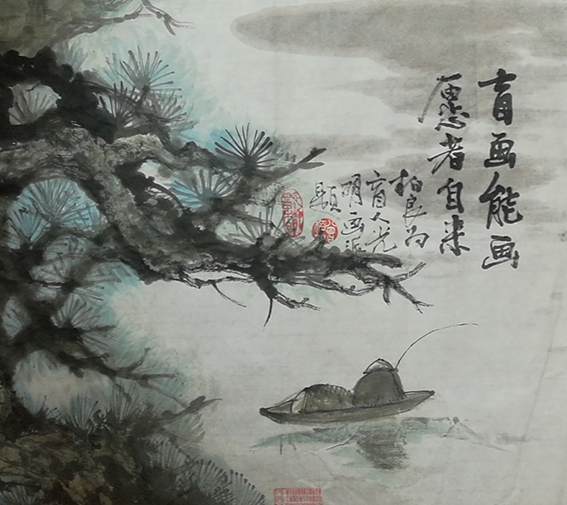 盲画能画
愿者自来
柏良为
盲人光
明画派
题